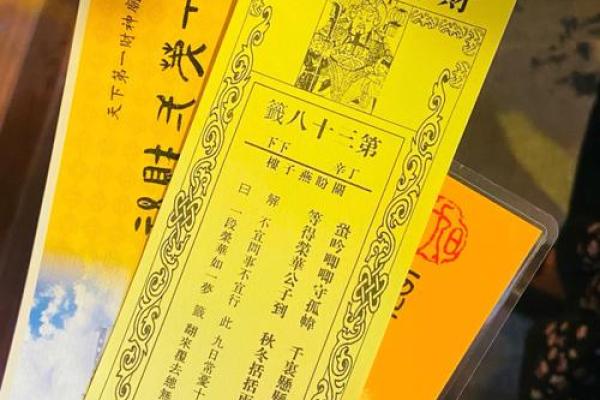 第三十八籤
丁辛 下下
關盼燕子樓
蛩吟唧唧守孤幃 千裏懸懸
等得榮華公子到 秋冬括括
解 不宜問事不宜行 此 九日常憂十
曰 一段榮華如一夢 籤 翻來覆去總
天下第一財神廟